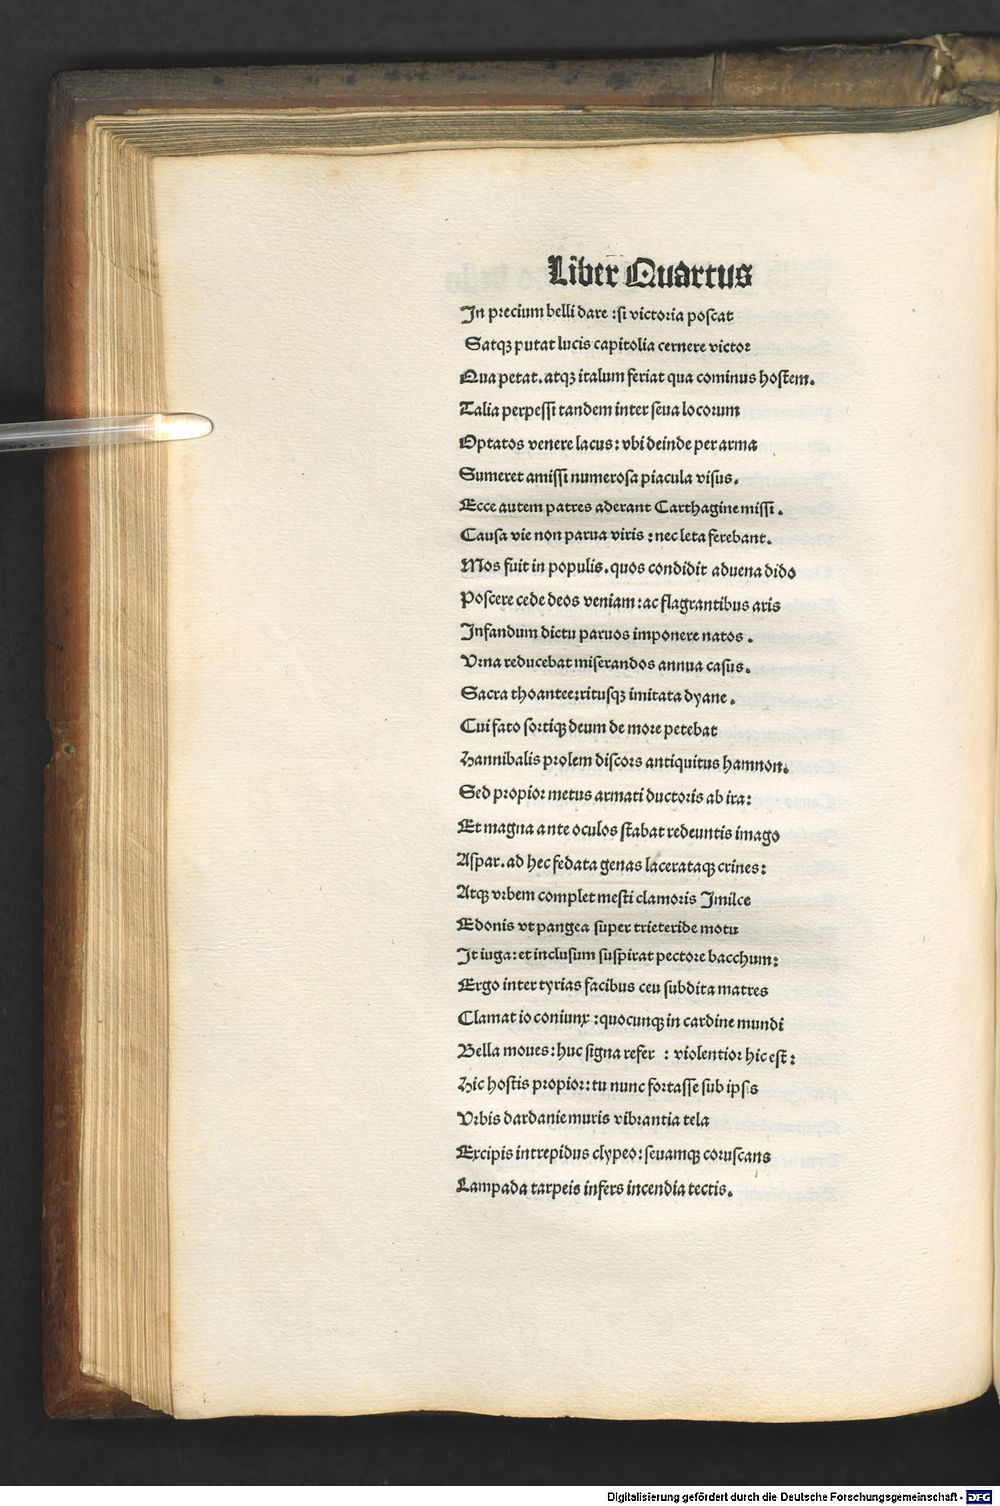 Liber Quartus
In precium belli dare : si victoria poscat
Satqꝫ putat lucis capitolia cernere victor
Qua petat. atqꝫ italum feriat qua cominus hostem.
Talia perpessi tandem inter seua locorum
Optatos venere lacus: vbi deinde per arma
Sumeret amissi numerosa piacula visus.
Ecce autem patres aderant Carthagine missi .
Causa vie non parua viris : nec leta ferebant.
Mos fuit in populis. quos condidit aduena dido
Poscere cede deos veniam: ac flagrantibus aris
Infandum dictu paruos imponere natos .
Vrna reducebat miserandos annua casus.
Sacra thoantee: ritusqꝫ imitata dyane .
Cui fato sortiqꝫ deum de more petebat
Hannibalis prolem discors antiquitus hamnon.
Sed propior metus armati ductoris ab ira:
Et magna ante oculos stabat redeuntis imago
Aspar. ad hec fedata genas lacerataqꝫ crines:
Atqꝫ vrbem complet mesti clamoris Imilce
Edonis vt pangea super trieteride motu
It iuga: et inclusum suspirat pectore bacchum:
Ergo inter tyrias facibus ceu subdita matres
Clamat io coniunx : quocunqꝫ in cardine mundi
Bella moues: huc signa refer : violentior hic est :
Hic hostis propior: tu nunc fortasse sub ipsis
Vrbis dardanie muris vibrantia tela
Excipis intrepidus clypeo: seuamqꝫ coruscans
Lampada tarpeis infers incendia tectis.
Digitalisierung gefördert durch die Deutsche Forschungsgemeinschaft - DFG